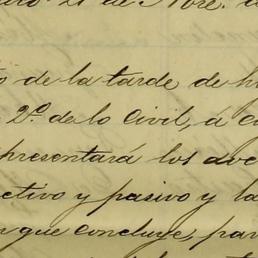 21 de Nbre.
de la tarde de
2º de lo Civil, á
presentará los
activo y pasivo y la
que concluye, par